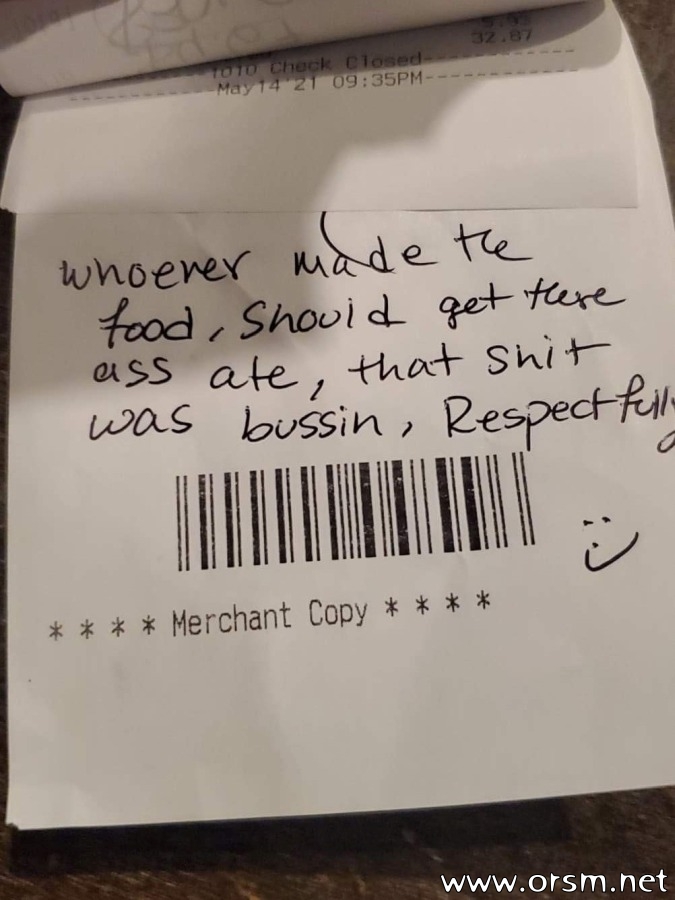 5.95
32.87
1010 Check Closed
May14'21 09:35PM
whoever made the
food, should get there
ass ate, that shit
was bussin, Respectfully
:)
**** Merchant Copy ****
www.orsm.net